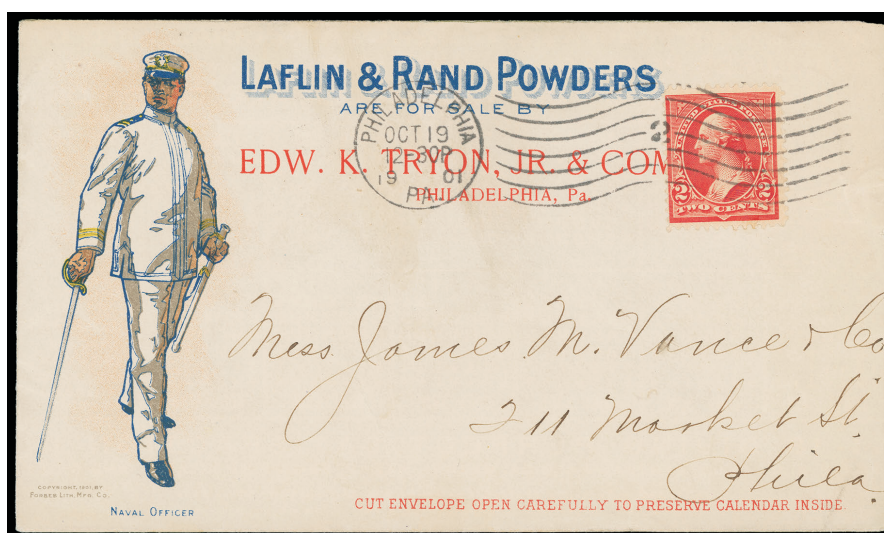 LAFLIN & RAND POWDERS
ARE FOR SALE BY
EDW. K. TRYON, JR. & COM
PHILADELPHIA, Pa.
PHILADELPHIA
OCT 19
12-30P
19 01
PA
2
UNITED STATES POSTAGE
2 2
TWO CENTS
Mess James M. Vance & Co
211 Market St.
Phila
COPYRIGHT, 1901, BY
FORBES LITH. MFG. CO.
NAVAL OFFICER
CUT ENVELOPE OPEN CAREFULLY TO PRESERVE CALENDAR INSIDE.